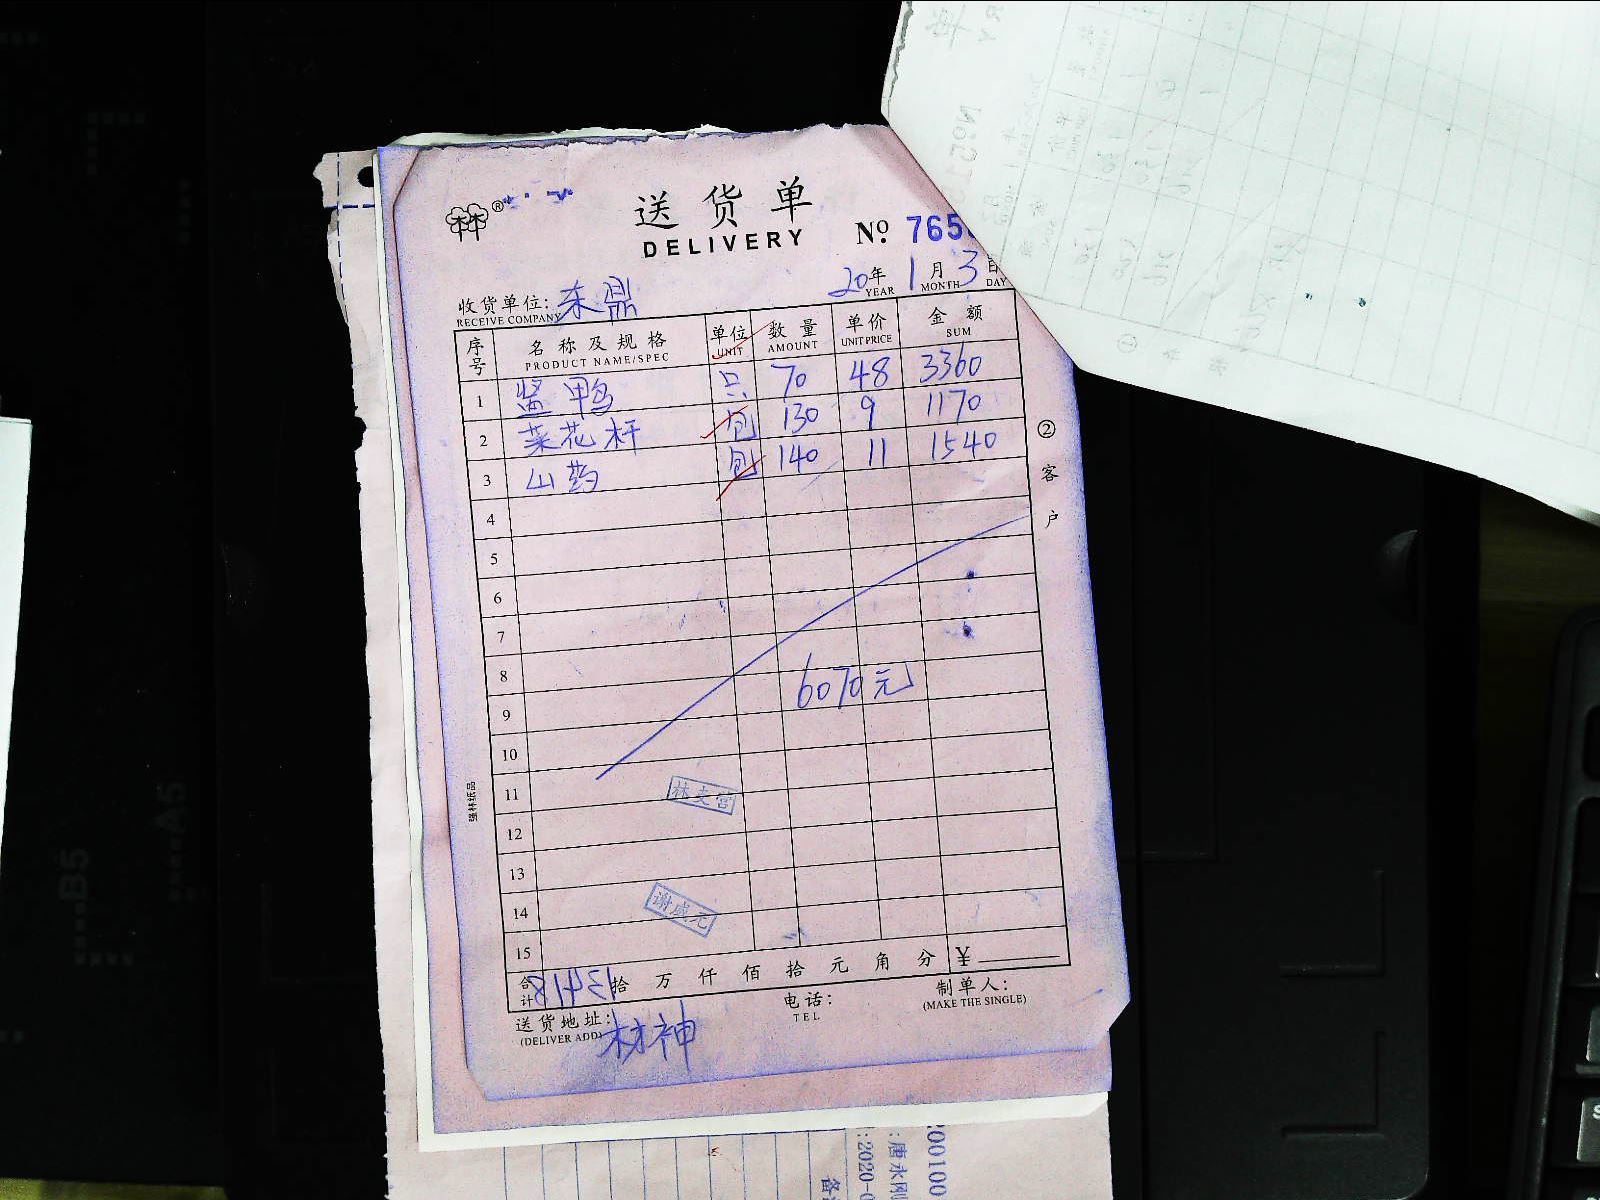 送货单
DELIVERY
№ 765
20年 1月 3日
YEAR MONTH DAY
收货单位: 东鼎
RECEIVE COMPANY
序号 名称及规格 单位 数量 单价 金额
PRODUCT NAME/SPEC UNIT AMOUNT UNIT PRICE SUM
1 酱鸭 只 70 48 3360
2 菜花杆 包 130 9 1170
3 山药 包 140 11 1540
4
5
6
7
8
6070元
9
10
11
12
13
14
15
②客户
强林纸品
谢成元
合计 拾万仟佰拾元角分 ¥
送货地址: 林神
(DELIVER ADD)
电话:
TEL
制单人:
(MAKE THE SINGLE)
200100
:唐永刚
:2020-0
备
B5
A5